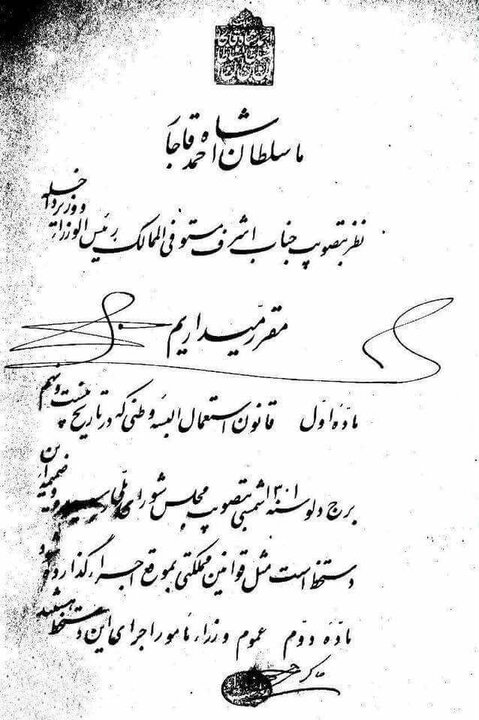 ما سلطان احمد شاه قاجار
نظر بتصویب جناب اشرف مستوفی الممالک رئیس الوزراء و وزیر داخله
مقرر میداریم
ماده اول قانون استعمال البسه وطنی که در تاریخ بیست و نهم
برج دلو سنه ۱۳۰۱ شمسی بتصویب مجلس شورای ملی رسیده و ضمیمه این
دستخط است مثل قوانین مملکتی بموقع اجراء گذارده شود
ماده دوم عموم وزراء مامور اجرای این دستخط هستند